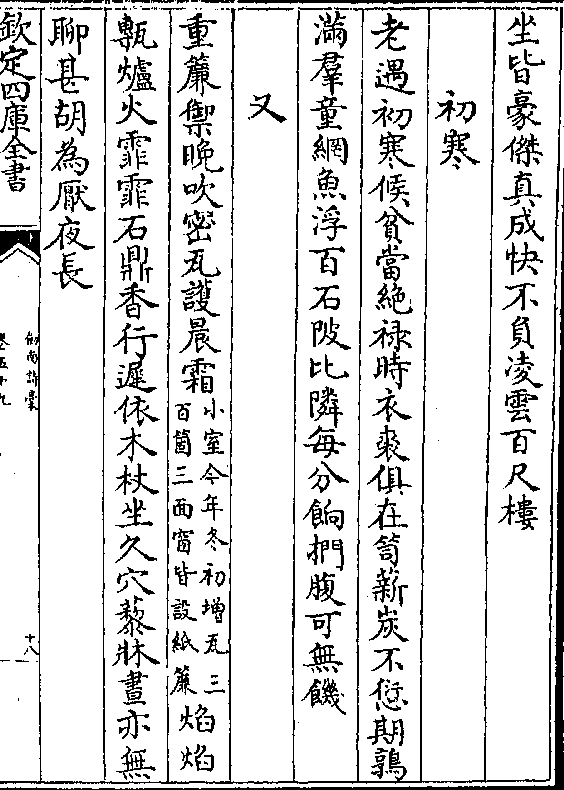 坐皆豪傑真成快不負凌雲百尺樓
初寒
老遇初寒候貧當絶禄時衣裘俱在笥薪炭不愆期鶉
滿羣童網魚浮百石陂比隣每分餉捫腹可無饑
又
重簾禦晚吹密瓦護晨霜小室今年冬初増瓦三百箇三面窗皆設紙簾焰焰
甎爐火霏霏石鼎香行遲依木杖坐久穴藜牀晝亦無
聊甚胡為厭夜長
欽定四庫全書
劍南詩稾
卷五十九
十八